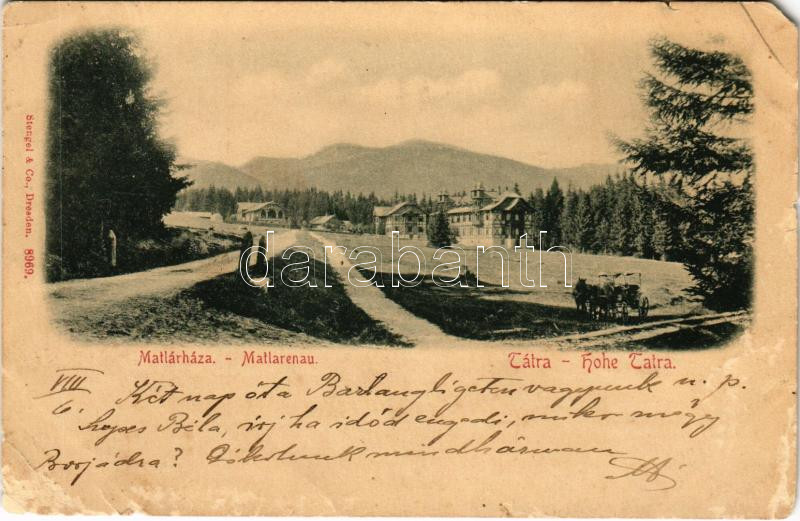 Stengel & Co., Dresden. 8969.
darabanth
Matlárháza. - Matlarenau.
Tátra - Hohe Tatra.
VIII
6. Két nap óta Barlangligeten vagyunk n. p.
Béla, irj ha időd engedi, mikor mégy
Borjádra? Csókolunk mindhárman